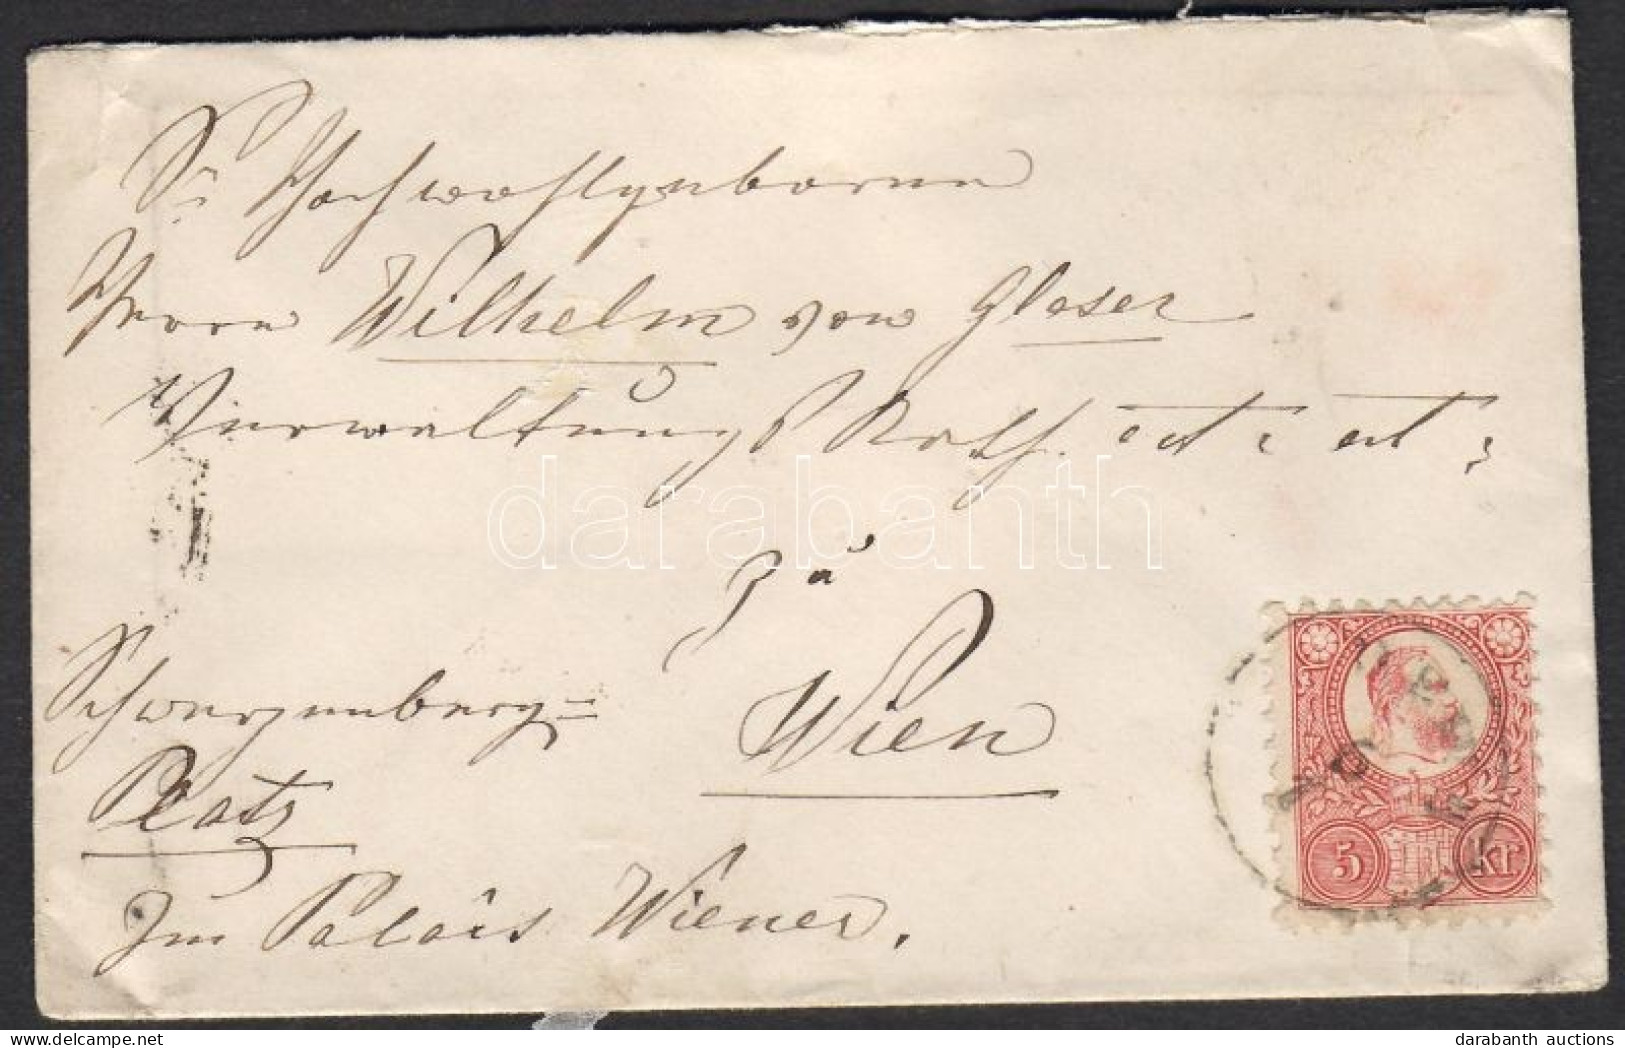 Sr Hochwohlgeboren
Herrn Wilhelm von Glaser
Verwaltungs Rath. etc: etc:
darabanth
zu
Wien
Schwarzenberg=
Platz
Im Palais Wiener.
5 Kr
darabanth auctions